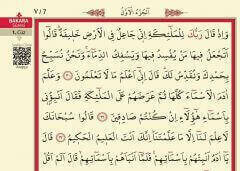 BAKARA
Sûresi
1. Cüz
اَلْجُزْءُ الْاَوَّلُ
وَاِذْ قَالَ رَبُّكَ لِلْمَلٰٓئِكَةِ اِنّ۪ي جَاعِلٌ فِي الْاَرْضِ خَل۪يفَةًۜ قَالُٓوا
اَتَجْعَلُ ف۪يهَا مَنْ يُفْسِدُ ف۪يهَا وَيَسْفِكُ الدِّمَٓاءَۚ وَنَحْنُ نُسَبِّحُ
بِحَمْدِكَ وَنُقَدِّسُ لَكَۜ قَالَ اِنّ۪ٓي اَعْلَمُ مَا لَا تَعْلَمُونَ ﴿٣٠﴾ وَعَلَّمَ
اٰدَمَ الْاَسْمَٓاءَ كُلَّهَا ثُمَّ عَرَضَهُمْ عَلَى الْمَلٰٓئِكَةِ فَقَالَ اَنْبِؤُ۫ن۪ي
بِاَسْمَٓاءِ هٰٓؤُ۬لَٓاءِ اِنْ كُنْتُمْ صَادِق۪ينَ ﴿٣١﴾ قَالُوا سُبْحَانَكَ
لَا عِلْمَ لَنَٓا اِلَّا مَا عَلَّمْتَنَاۜ اِنَّكَ اَنْتَ الْعَل۪يمُ الْحَك۪يمُ ﴿٣٢﴾ قَالَ
يَٓا اٰدَمُ اَنْبِئْهُمْ بِاَسْمَٓائِهِمْۚ فَلَمَّٓا اَنْبَاَهُمْ بِاَسْمَٓائِهِمْ قَالَ اَلَمْ اَقُلْ